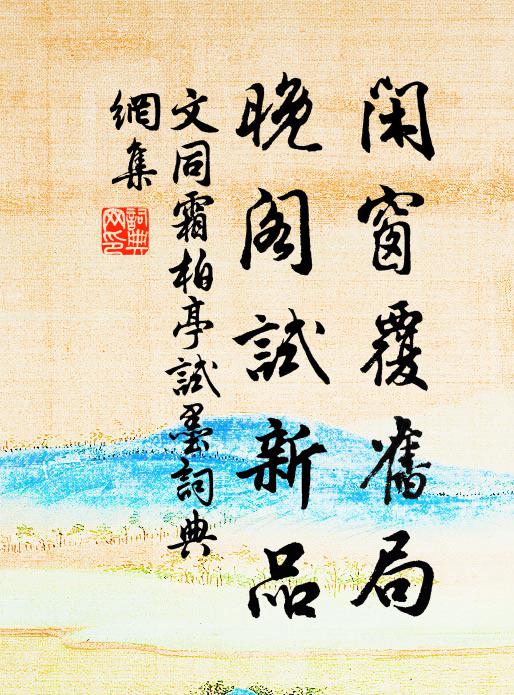 閑窗覆舊局
晚閣試新品
文同霜柏亭試墨詞典
網集
詞典
网印